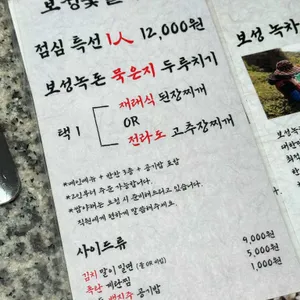 보성
점심 특선 1人 12,000원
보성녹돈 묵은지 두루치기
택 1
재래식 된장찌개
OR
전라도 고추장찌개
*메인메뉴 + 반찬 3종 + 공기밥 포함
*2인부터 주문 가능합니다.
직원에게 편하게 말씀해주세요.
사이드류
김치 말이 밀면 9,000원
폭탄 계란찜 5,000원
공기밥 1,000원
보성 녹차